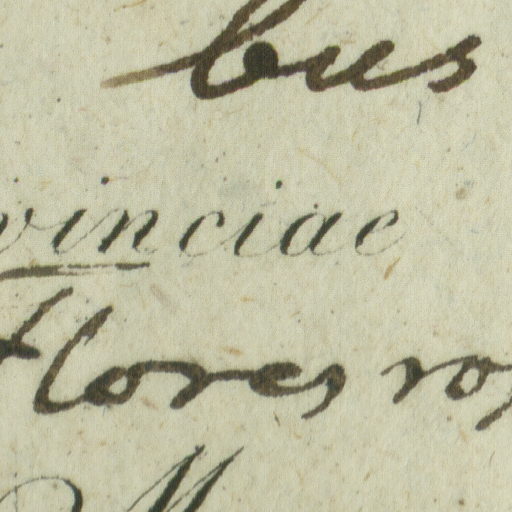 bus
vinciae
flores